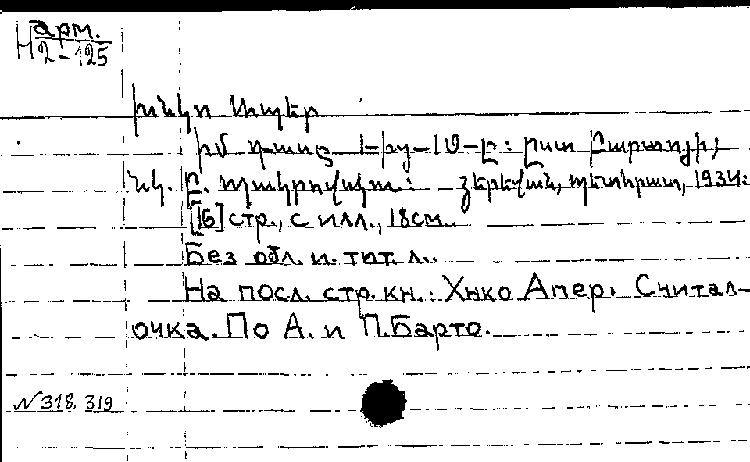 арм.
Н 2-125
Խնկո Ապեր
Իմ դասը 1-ից-10-ը: Ըստ Բարտոյի;
նկ. Ը. Երևան, պետհրատ, 1934:
[16] стр., с илл., 18см.
Без обл. и. тит. л.
На посл. стр. кн.: Хнко Апер. Считал-
очка. По А. и П.Барто.
№ 318, 319